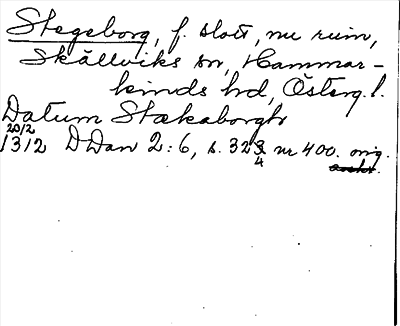 Stegeborg, f. slott, nu ruin,
Skällviks sn, Hammar-
kinds hd, Österg.l.
Datum Stækaborgh
20/2
1312 DDan 2:6, s. 323 nr 400. orig.
4